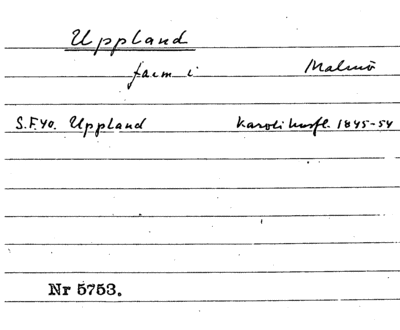 Uppland
fam i Malmö
S.F.40. Uppland Karoli husfl. 1845-54
Nr 5753.